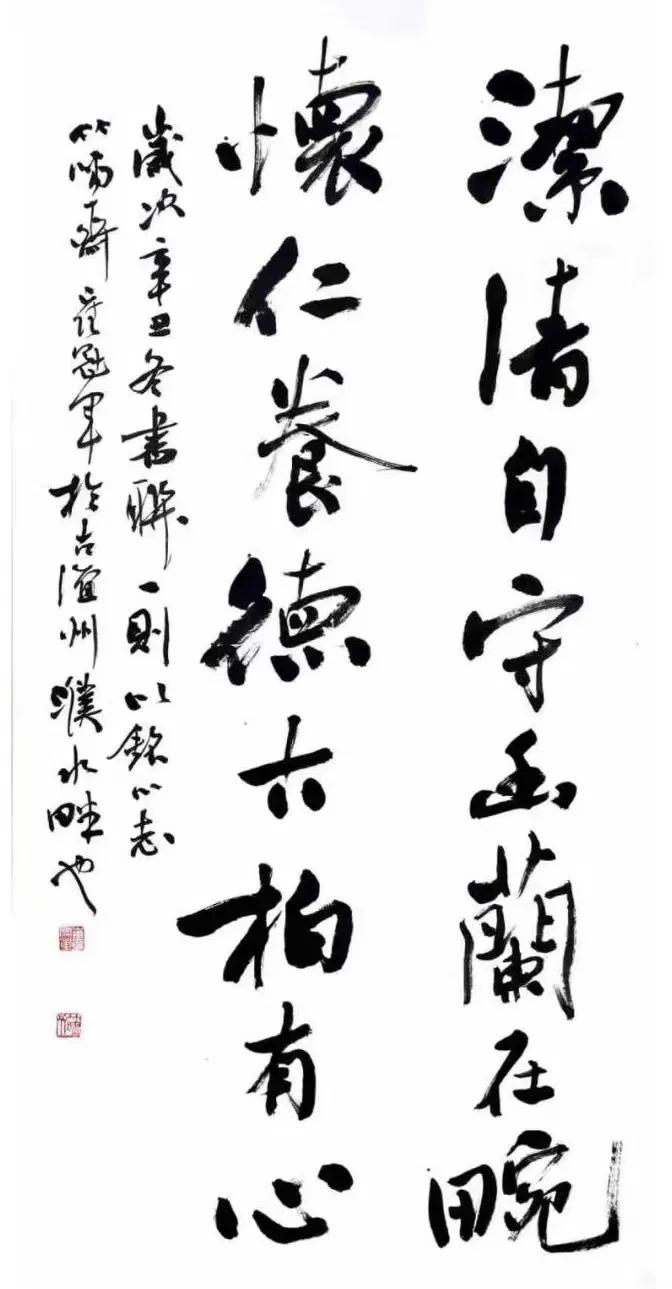 潔清自守幽蘭在畹
懷仁養德古柏有心
歲次辛丑冬書聯一則以銘心志
竹陽齋崔冠軍於古澶州濮水畔也